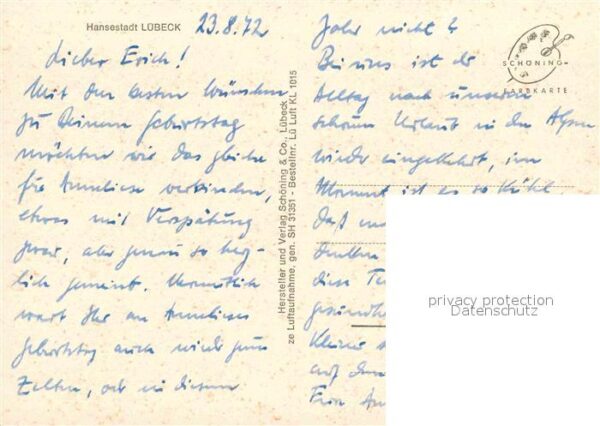 Hansestadt LÜBECK
23.8.72
Lieber Erich!
Mit den besten Wünschen
zu Deinem Geburtstag
möchten wir das gleiche
für Anneliese verbinden,
etwas mit Verspätung
zwar, aber genau so herz-
lich gemeint. Vermutlich
wart Ihr an Annelieses
Geburtstag auch wieder zum
Zelten, oder in diesem
Hersteller und Verlag Schöning & Co., Lübeck
ze Luftaufnahme, gen. SH 31351 - Bestellnr. Lü Luft KL 1015
Jahr nicht?
Bei uns ist der
Alltag nach unserem
schönen Urlaub in den Alpen
wieder eingekehrt, im
Moment ist es so kühl
daß
denken
diese
Kleine
auf
Frau
SCHÖNING-
FARBKARTE
privacy protection
Datenschutz